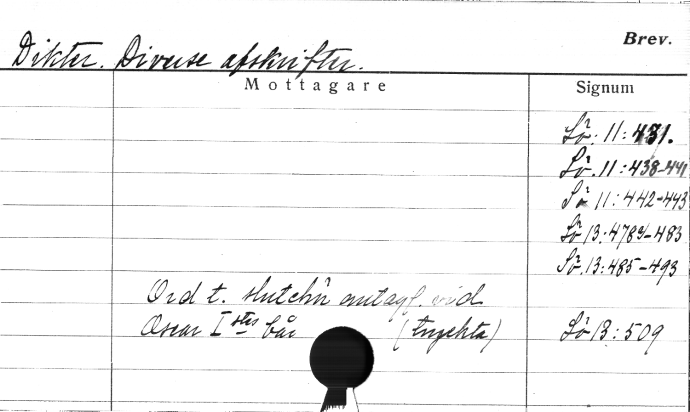 Brev.
Dikter. Diverse afskrifter.
Mottagare Signum
Sö. 11:431.
Sö. 11:438-441
Sö 11:442-443
Sö 13:478-483
Sö. 13:485-493
Ord t. vid
Oscar I stes bår (tryckta) Sö 13:509